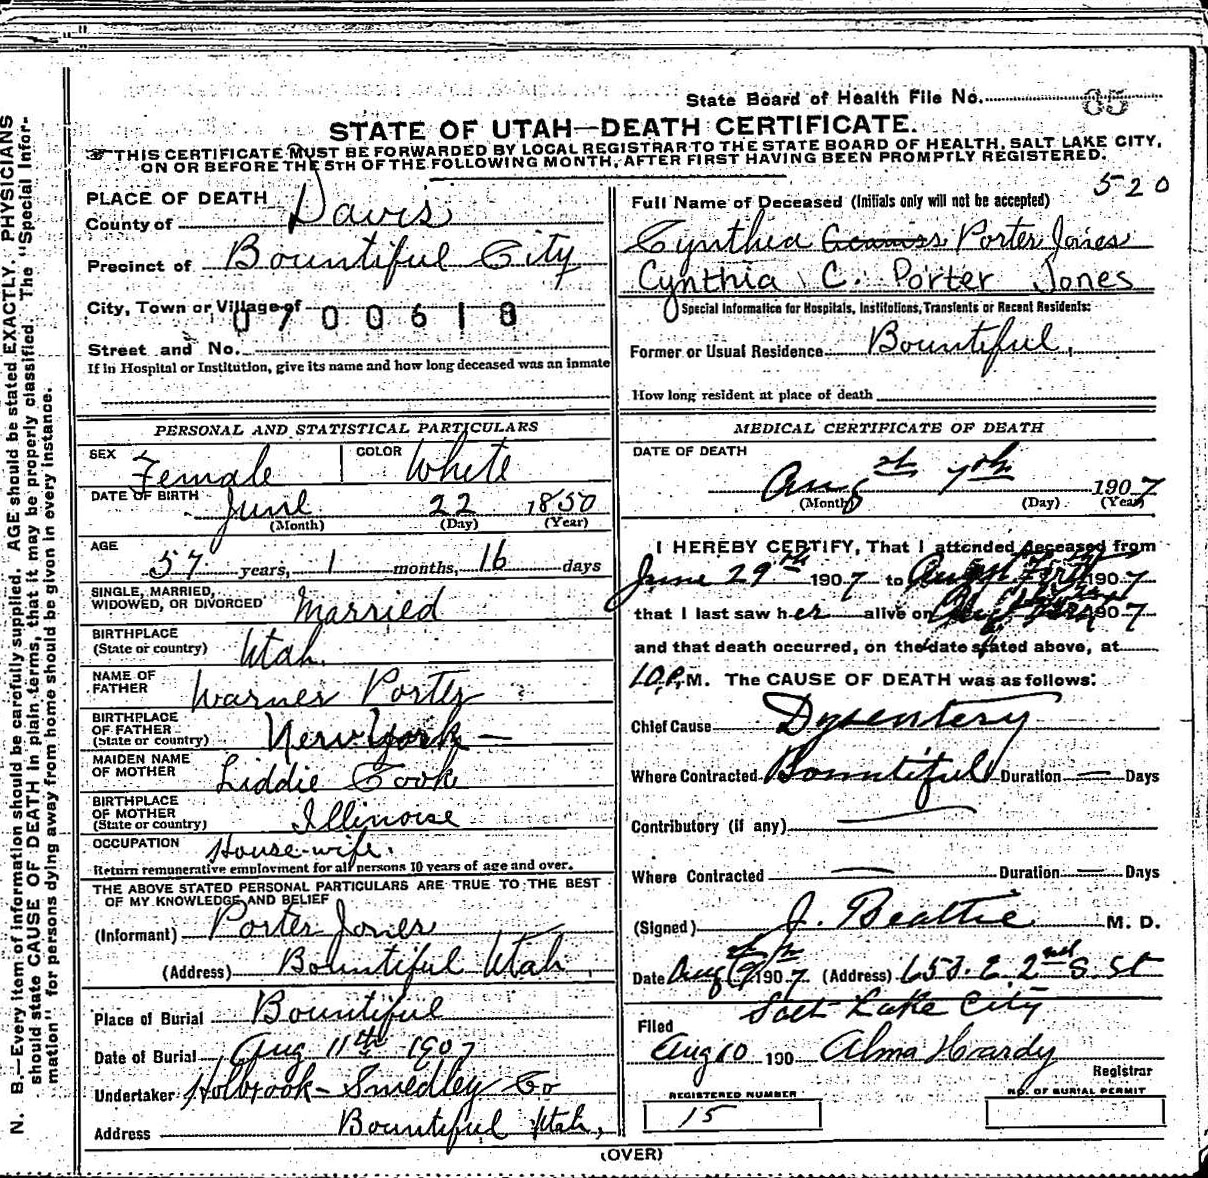 State Board of Health File No. 65
STATE OF UTAH—DEATH CERTIFICATE.
THIS CERTIFICATE MUST BE FORWARDED BY LOCAL REGISTRAR TO THE STATE BOARD OF HEALTH, SALT LAKE CITY,
ON OR BEFORE THE 5TH OF THE FOLLOWING MONTH, AFTER FIRST HAVING BEEN PROMPTLY REGISTERED.
N. B.—Every item of information should be carefully supplied. AGE should be stated EXACTLY. PHYSICIANS
should state CAUSE OF DEATH in plain terms, that it may be properly classified. The "Special Infor-
mation" for persons dying away from home should be given in every instance.
PLACE OF DEATH
County of Davis
Precinct of Bountiful City
City, Town or Village of
0700618
Street and No.
If in Hospital or Institution, give its name and how long deceased was an inmate
PERSONAL AND STATISTICAL PARTICULARS
SEX Female COLOR White
DATE OF BIRTH June 22 1850
(Month) (Day) (Year)
AGE
57 years, 1 months, 16 days
SINGLE, MARRIED,
WIDOWED, OR DIVORCED Married
BIRTHPLACE
(State or country) Utah.
NAME OF
FATHER Warner Porter
BIRTHPLACE
OF FATHER
(State or country) New York —
MAIDEN NAME
OF MOTHER Liddie Cook
BIRTHPLACE
OF MOTHER
(State or country) Illinoise
OCCUPATION House-wife.
Return remunerative employment for all persons 10 years of age and over.
THE ABOVE STATED PERSONAL PARTICULARS ARE TRUE TO THE BEST
OF MY KNOWLEDGE AND BELIEF
(Informant) Porter Jones
(Address) Bountiful Utah,
Place of Burial Bountiful
Date of Burial Aug 11th 1907
Undertaker Holbrook-Smedley Co
Address Bountiful Utah,
520
Full Name of Deceased (Initials only will not be accepted)
Cynthia Porter Jones
Cynthia C. Porter Jones
Special Information for Hospitals, Institutions, Transients or Recent Residents:
Former or Usual Residence Bountiful,
How long resident at place of death
MEDICAL CERTIFICATE OF DEATH
DATE OF DEATH
Aug 7th 1907
(Month) (Day) (Year)
I HEREBY CERTIFY, That I attended deceased from
June 29th 1907 to 1907
that I last saw her alive on 1907
and that death occurred, on the date stated above, at
10 P. M. The CAUSE OF DEATH was as follows:
Chief Cause Dysentery
Where Contracted Bountiful Duration — Days
Contributory (if any)
Where Contracted — Duration — Days
(Signed) J. Beattie M. D.
Date Aug 1907 (Address) 653. E 2nd S. St
Salt Lake City
Filed
Aug 10 190 Alma Hardy
Registrar
REGISTERED NUMBER
15
NO. OF BURIAL PERMIT
(OVER)